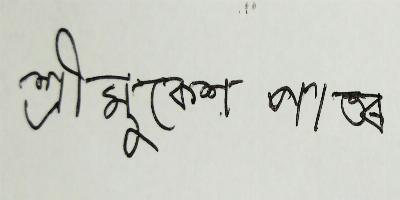 শ্রী মুকেশ পাণ্ডে